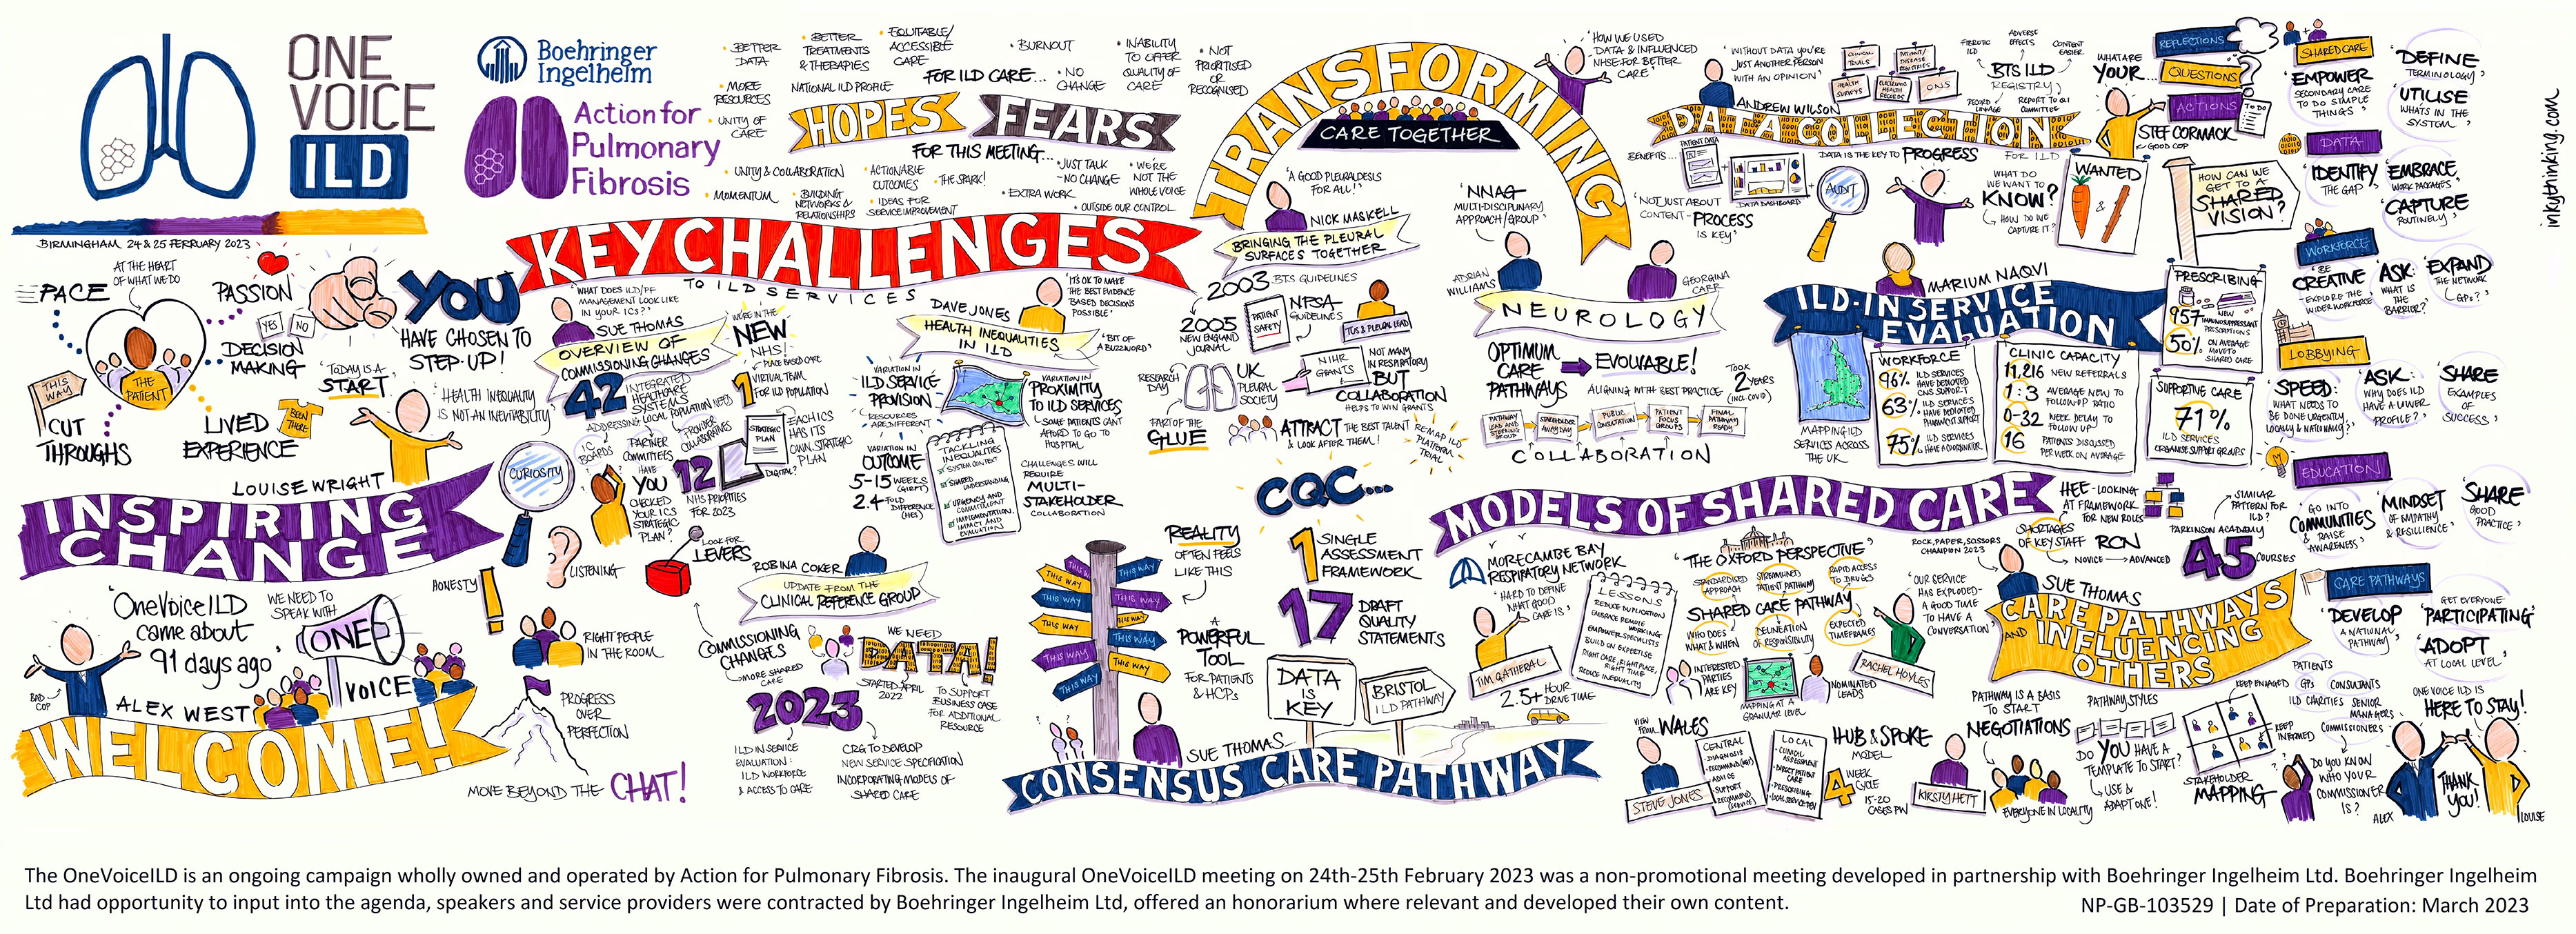 ONE
VOICE
ILD
BIRMINGHAM 24 & 25 FEBRUARY 2023
Boehringer
Ingelheim
Action for
Pulmonary
Fibrosis
• BETTER
DATA
• BETTER
TREATMENTS
& THERAPIES
• EQUITABLE/
ACCESSIBLE
CARE
• MORE
RESOURCES
NATIONAL ILD PROFILE
• UNITY OF
CARE
FOR ILD CARE...
• BURNOUT
• NO
CHANGE
• INABILITY
TO OFFER
QUALITY OF
CARE
• NOT
PRIORITISED
OR
RECOGNISED
HOPES
FEARS
FOR THIS MEETING...
• UNITY & COLLABORATION
• MOMENTUM
• BUILDING
NETWORKS &
RELATIONSHIPS
• ACTIONABLE
OUTCOMES
• IDEAS FOR
SERVICE IMPROVEMENT
• THE SPARK!
• JUST TALK
- NO CHANGE
• EXTRA WORK
• WE'RE
NOT THE
WHOLE VOICE
• OUTSIDE OUR CONTROL
PACE
AT THE HEART
OF WHAT WE DO
PASSION
THE
PATIENT
YES
NO
DECISION
MAKING
THIS
WAY
CUT
THROUGHS
LIVED
EXPERIENCE
BEEN
THERE
YOU
HAVE CHOSEN TO
STEP-UP!
'TODAY IS A
START'
'HEALTH INEQUALITY
IS NOT AN INEVITABILITY'
LOUISE WRIGHT
INSPIRING
CHANGE
CURIOSITY
LISTENING
HONESTY
!
RIGHT PEOPLE
IN THE ROOM
PROGRESS
OVER
PERFECTION
MOVE BEYOND THE CHAT!
'OneVoiceILD
came about
91 days ago'
WE NEED TO
SPEAK WITH
ONE
VOICE
BAD
COP
ALEX WEST
WELCOME!
KEY CHALLENGES
TO ILD SERVICES
'WHAT DOES ILD/PF
MANAGEMENT LOOK LIKE
IN YOUR ICS?'
SUE THOMAS
OVERVIEW OF
COMMISSIONING CHANGES
WE'RE IN THE
NEW
NHS!
PLACE BASED CARE
42
INTEGRATED
HEALTHCARE
SYSTEMS
ADDRESSING LOCAL POPULATION NEED
1
VIRTUAL TEAM
FOR ILD POPULATION
IC
BOARDS
PARTNER
COMMITTEES
PROVIDER
COLLABORATIVES
STRATEGIC
PLAN
EACH ICS
HAS ITS
OWN STRATEGIC
PLAN
DIGITAL?
HAVE
YOU
CHECKED
YOUR ICS
STRATEGIC
PLAN?
12
NHS PRIORITIES
FOR 2023
LOOK FOR
LEVERS
DAVE JONES
HEALTH INEQUALITIES
IN ILD
'IT'S OK TO MAKE
THE BEST EVIDENCE
BASED DECISIONS
POSSIBLE'
'BIT OF
A BUZZWORD'
VARIATION IN
ILD SERVICE
PROVISION
RESOURCES
ARE DIFFERENT
VARIATION IN
PROXIMITY
TO ILD SERVICES
SOME PATIENTS CAN'T
AFFORD TO GO TO
HOSPITAL
VARIATION IN
OUTCOME
5-15 WEEKS
(GIRFT)
2.4 FOLD
DIFFERENCE
(HES)
TACKLING
INEQUALITIES
SYSTEM CONTEXT
SHARED
UNDERSTANDING
URGENCY AND
COMMITMENT
IMPLEMENTATION,
IMPACT AND
EVALUATION
CHALLENGES WILL
REQUIRE
MULTI-
STAKEHOLDER
COLLABORATION
ROBINA COKER
UPDATE FROM THE
CLINICAL REFERENCE GROUP
COMMISSIONING
CHANGES
MORE SHARED
CARE
WE NEED
DATA!
STARTED APRIL
2022
TO SUPPORT
BUSINESS CASE
FOR ADDITIONAL
RESOURCE
2023
ILD IN SERVICE
EVALUATION:
ILD WORKFORCE
& ACCESS TO CARE
CRG TO DEVELOP
NEW SERVICE SPECIFICATION
INCORPORATING MODELS OF
SHARED CARE
TRANSFORMING
CARE TOGETHER
'A GOOD PLEURALDESIS
FOR ALL!'
NICK MASKELL
BRINGING THE PLEURAL
SURFACES TOGETHER
2003 BTS GUIDELINES
2005
NEW ENGLAND
JOURNAL
PATIENT
SAFETY
NPSA
GUIDELINES
TUS & PLEURAL LEAD
NIHR
GRANTS
NOT MANY
IN RESPIRATORY
BUT
COLLABORATION
HELPS TO WIN GRANTS
RESEARCH
DAY
UK
PLEURAL
SOCIETY
PART OF THE
GLUE
ATTRACT THE BEST TALENT
& LOOK AFTER THEM!
REMAP ILD
PLATFORM
TRIAL
'NNAG
MULTI-DISCIPLINARY
APPROACH/GROUP'
ADRIAN
WILLIAMS
GEORGINA
CARR
NEUROLOGY
OPTIMUM
CARE
PATHWAYS
EVOLVABLE!
ALIGNING WITH BEST PRACTICE
TOOK
2 YEARS
(INCL. COVID)
PATHWAY
LEAD AND
STEERING
GROUP
STAKEHOLDER
AWAY DAY
PUBLIC
CONSULTATION
PATIENT
FOCUS
GROUPS
FINAL
PATHWAY
READY
COLLABORATION
REALITY
OFTEN FEELS
LIKE THIS
THIS WAY
THIS WAY
THIS WAY
THIS WAY
THIS WAY
THIS WAY
THIS WAY
THIS WAY
THIS WAY
THIS WAY
THIS WAY
CQC...
1
SINGLE
ASSESSMENT
FRAMEWORK
17
DRAFT
QUALITY
STATEMENTS
A
POWERFUL
TOOL
FOR PATIENTS
& HCPs
DATA
IS
KEY
BRISTOL
ILD PATHWAY
SUE THOMAS
CONSENSUS CARE PATHWAY
'HOW WE USED
DATA & INFLUENCED
NHSE FOR BETTER
CARE'
'WITHOUT DATA YOU'RE
JUST ANOTHER PERSON
WITH AN OPINION'
ANDREW WILSON
DATA COLLECTION
FOR ILD
CLINICAL
TRIALS
PATIENT/
DISEASE
REGISTRIES
HEALTH
SURVEYS
ELECTRONIC
HEALTH
RECORDS
ONS
FIBROTIC
ILD
ADVERSE
EFFECTS
CONTENT
EASIER
BTS ILD
REGISTRY
RECORD
LINKAGE
REPORT TO QI
COMMITTEE
BENEFITS...
PATIENT DATA
DATA DASHBOARD
AUDIT
DATA IS THE KEY TO PROGRESS
'NOT JUST ABOUT
CONTENT - PROCESS
IS KEY'
WHAT DO
WE WANT TO
KNOW?
HOW DO WE
CAPTURE IT?
WANTED
&
WHAT ARE
YOUR...
REFLECTIONS
QUESTIONS?
ACTIONS
TO DO
STEF CORMACK
GOOD COP
HOW CAN WE
GET TO A
SHARED
VISION?
MARIUM NAQVI
ILD-IN SERVICE
EVALUATION
MAPPING ILD
SERVICES ACROSS
THE UK
WORKFORCE
96% ILD SERVICES
HAVE DEDICATED
CNS SUPPORT
63% ILD SERVICES
HAVE DEDICATED
PHARMACIST SUPPORT
75% ILD SERVICES
HAVE A COORDINATOR
CLINIC CAPACITY
11,216 NEW REFERRALS
1:3 AVERAGE NEW TO
FOLLOW UP RATIO
0-32 WEEK DELAY TO
FOLLOW UP
16 PATIENTS DISCUSSED
PER WEEK ON AVERAGE
PRESCRIBING
957 NEW
IMMUNOSUPPRESSANT
PRESCRIPTIONS
50% ON AVERAGE
MOVE TO
SHARED CARE
SUPPORTIVE CARE
71%
ILD SERVICES
ORGANISE SUPPORT GROUPS
MODELS OF SHARED CARE
MORECAMBE BAY
RESPIRATORY NETWORK
'HARD TO DEFINE
WHAT GOOD
CARE IS'
TIM GATHERAL
2.5+ HOUR
DRIVE TIME
LESSONS
REDUCE DUPLICATION
EMBRACE REMOTE
WORKING
EMPOWER SPECIALISTS
BUILD ON EXPERTISE
RIGHT CARE, RIGHT PLACE,
RIGHT TIME
REDUCE INEQUALITY
'THE OXFORD PERSPECTIVE'
STANDARDISED
APPROACH
STREAMLINED
PATIENT PATHWAY
RAPID ACCESS
TO DRUGS
SHARED CARE PATHWAY
WHO DOES
WHAT & WHEN
DELINEATION
OF RESPONSIBILITY
EXPECTED
TIMEFRAMES
INTERESTED
PARTIES
ARE KEY
MAPPING AT A
GRANULAR LEVEL
NOMINATED
LEADS
'OUR SERVICE
HAS EXPLODED -
A GOOD TIME
TO HAVE A
CONVERSATION'
RACHEL HOYLES
VIEW
FROM WALES
STEVE JONES
CENTRAL
- DIAGNOSIS
- RECOMMEND (MDT)
- ADVICE
- SUPPORT
LOCAL
- CLINICAL
ASSESSMENT
- DIRECT PATIENT
CARE
- PRESCRIBING
HUB & SPOKE
MODEL
4 WEEK
CYCLE
15-20
CASES PW
KIRSTY HETT
HEE - LOOKING
AT FRAMEWORK
FOR NEW ROLES
SHORTAGES
OF KEY STAFF
ROCK, PAPER, SCISSORS
CHAMPION 2023
RCN
NOVICE → ADVANCED
SIMILAR
PATTERN FOR
ILD?
PARKINSON ACADEMY
45 COURSES
SUE THOMAS
CARE PATHWAYS
AND INFLUENCING
OTHERS
PATHWAY IS A BASIS
TO START
NEGOTIATIONS
EVERYONE IN LOCALITY
PATHWAY STYLES
DO YOU HAVE A
TEMPLATE TO START?
USE &
ADAPT ONE!
STAKEHOLDER
MAPPING
KEEP ENGAGED
KEEP
INFORMED
PATIENTS
GPs
CONSULTANTS
ILD CHARITIES
SENIOR
MANAGERS
COMMISSIONERS
DO YOU KNOW
WHO YOUR
COMMISSIONER
IS?
SHARED CARE
'EMPOWER
SECONDARY CARE
TO DO SIMPLE
THINGS'
'DEFINE
TERMINOLOGY'
'UTILISE
WHATS IN THE
SYSTEM'
DATA
'IDENTIFY
THE GAP'
'EMBRACE
WORK PACKAGES'
'CAPTURE
ROUTINELY'
WORKFORCE
'BE
CREATIVE
- EXPLORE THE
WIDER WORKFORCE'
'ASK:
WHAT IS
THE
BARRIER?'
'EXPAND
THE NETWORK
GPs?'
LOBBYING
'SPEED:
WHAT NEEDS TO
BE DONE URGENTLY,
LOCALLY & NATIONALLY?'
'ASK:
WHY DOES ILD
HAVE A LOWER
PROFILE?'
'SHARE
EXAMPLES
OF
SUCCESS'
EDUCATION
'GO INTO
COMMUNITIES
& RAISE
AWARENESS'
'MINDSET
OF EMPATHY
& RESILIENCE'
'SHARE
GOOD
PRACTICE'
CARE PATHWAYS
'DEVELOP
A NATIONAL
PATHWAY'
GET EVERYONE
'PARTICIPATING'
'ADOPT
AT LOCAL LEVEL'
ONE VOICE ILD IS
HERE TO STAY!
THANK
YOU!
ALEX
LOUISE
inkythinking.com
The OneVoiceILD is an ongoing campaign wholly owned and operated by Action for Pulmonary Fibrosis. The inaugural OneVoiceILD meeting on 24th-25th February 2023 was a non-promotional meeting developed in partnership with Boehringer Ingelheim Ltd. Boehringer Ingelheim
Ltd had opportunity to input into the agenda, speakers and service providers were contracted by Boehringer Ingelheim Ltd, offered an honorarium where relevant and developed their own content.
NP-GB-103529 | Date of Preparation: March 2023